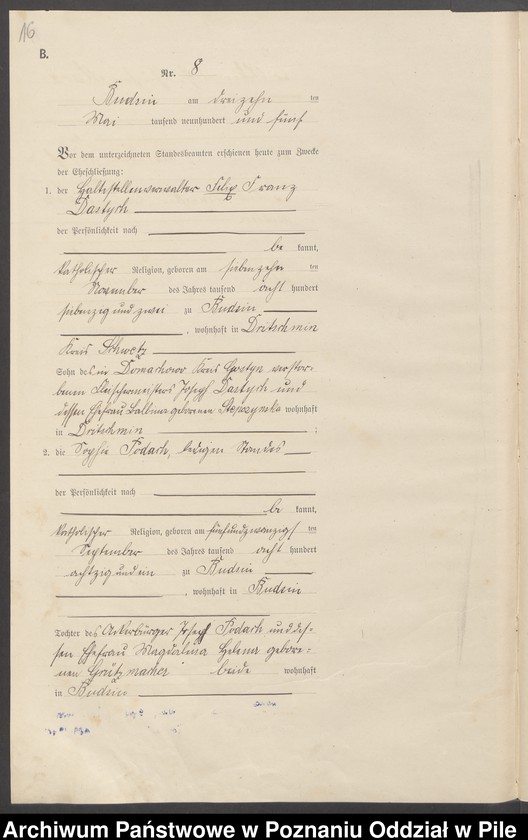 16
B.
Nr. 8
Budsin am dreizehn ten
Mai tausend neunhundert und fünf
Vor dem unterzeichneten Standesbeamten erschienen heute zum Zwecke
der Eheschließung:
1. der Haltestellenverwalter Felix Franz
Dastych
der Persönlichkeit nach
be kannt,
katholischer Religion, geboren am siebenzehn ten
November des Jahres tausend acht hundert
siebenzig und zwei zu Budsin
, wohnhaft in Dritschmin
Kreis Schwetz
Sohn des in Domachowo Kreis Gostyn verstor-
benen Fleischermeisters Joseph Dastych und
dessen Ehefrau Balbina geborenen wohnhaft
in Dritschmin ;
2. die Sophie Podach, ledigen Standes
der Persönlichkeit nach
be kannt,
katholischer Religion, geboren am fünfundzwanzigs ten
September des Jahres tausend acht hundert
achtzig und ein zu Budsin
, wohnhaft in Budsin
Tochter des Ackerbürger Joseph Podach und des-
sen Ehefrau Magdalena Helena gebore-
nen Grützmacher beide wohnhaft
in Budsin
Archiwum Państwowe w Poznaniu Oddział w Pile